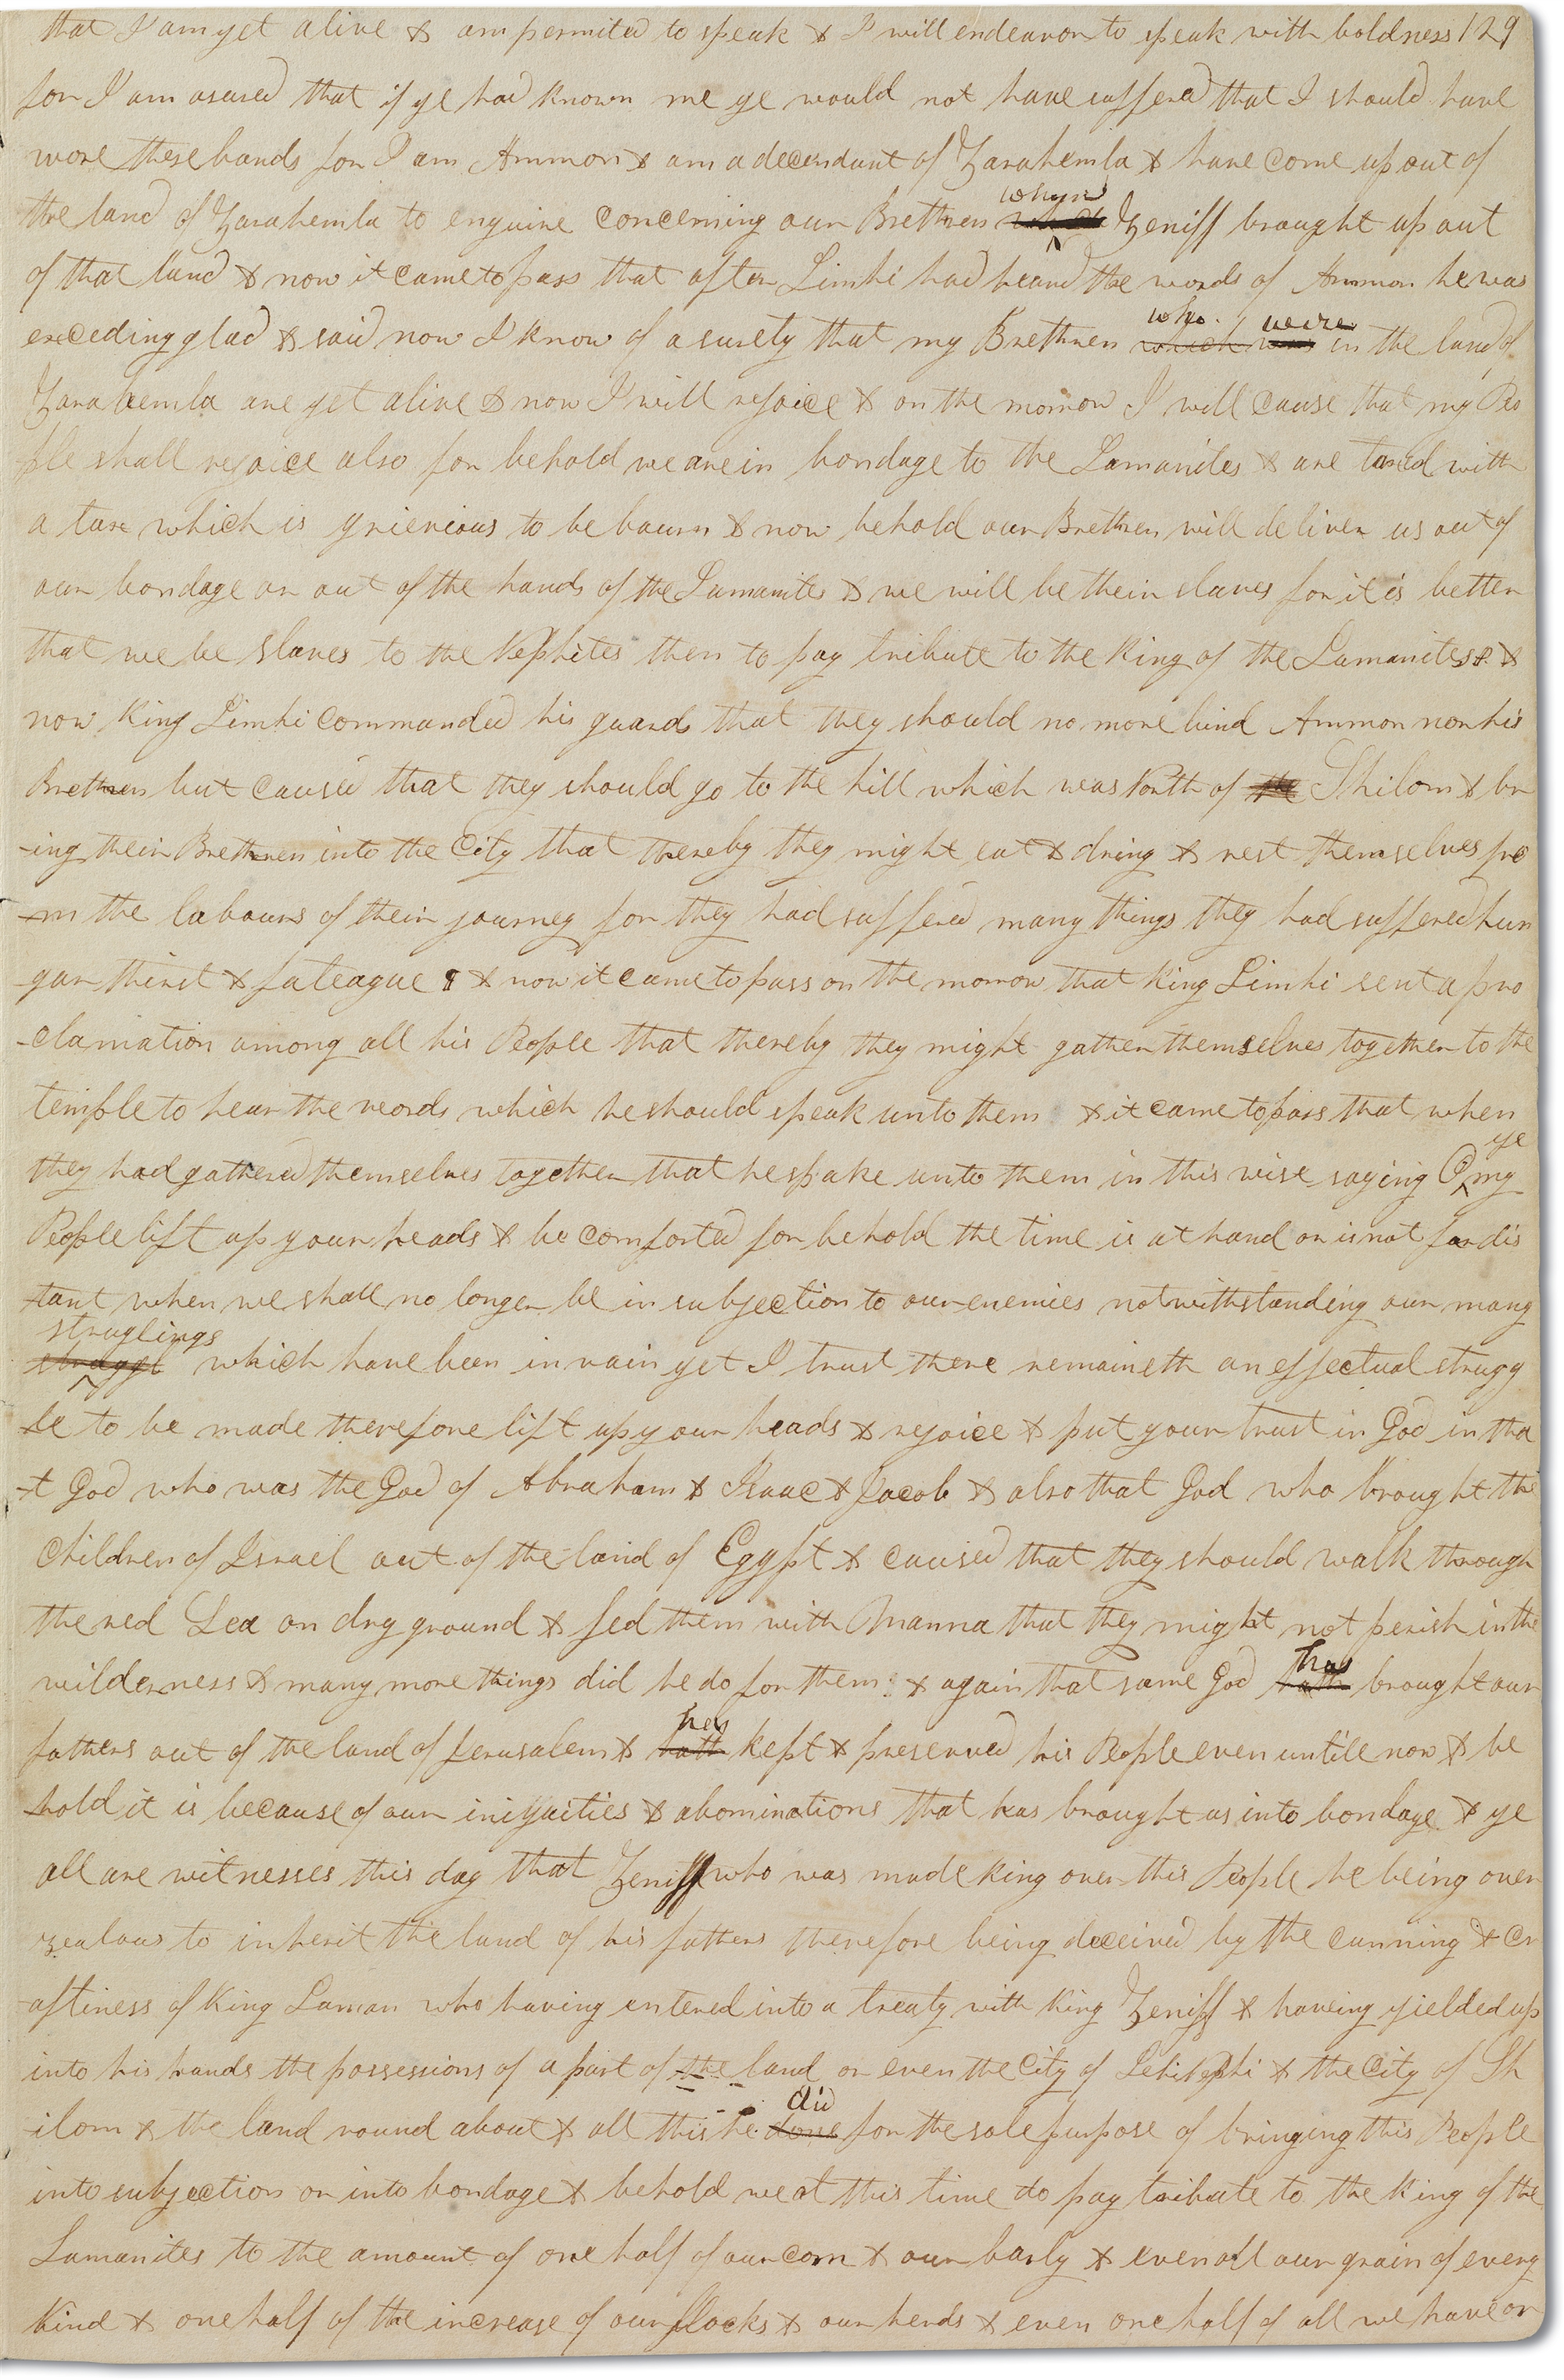 that I am yet alive & am permited to speak & I will endeavor to speak with boldness 129
for I am asured that if ye had known me ye would not have suffered that I should have
wore these bands for I am Ammon & am a decendant of Zarahemla & have come up out of
the land of Zarahemla to enquire concerning our Brethren whom Zeniff brought up out
of that land & now it came to pass that after Limhi had heard the words of Ammon he was
exceding glad & said now I know of a surety that my Brethren which who was were in the land of
Zarahemla are yet alive & now I will rejoice & on the morrow I will cause that my Peo
ple shall rejoice also for behold we are in bondage to the Lamanites & are taxed with
a tax which is grievious to be bourn & now behold our Brethren will deliver us out of
our bondage or out of the hands of the Lamanites & we will be their slaves for it is better
that we be slaves to the Nephites then to pay tribute to the King of the Lamanites &
now King Limhi commanded his guards that they should no more bind Ammon nor his
Brethren but caused that they should go to the hill which was North of the Shilom & br
-ing their Brethren into the City that thereby they might eat & dring & rest themselves fro
-m the labours of their journey for they had suffered many things they had suffered hun
gar thirst & fateague & now it came to pass on the morrow that King Limhi sent a pro
-clamation among all his People that thereby they might gather themselves together to the
temple to hear the words which he should speak unto them & it came to pass that when
they had gathered themselves together that he spake unto them in this wise saying O ye my
People lift up your heads & be comforted for behold the time is at hand or is not far dis
-tant when we shall no longer be in subjection to our enemies notwithstanding our many
struggl struglings which have been in vain yet I trust there remaineth an effectual strugg
-le to be made therefore lift up your heads & rejoice & put your trust in God in tha
-t God who was the God of Abraham & Isaac & Jacob & also that God who brought the
Children of Israel out of the land of Egypt & caused that they should walk through
the red Sea on dry ground & fed them with Manna that they might not perish in the
wilderness & many more things did he do for them & again that same God hath has brought our
fathers out of the land of Jerusalem & hath has kept & preserved his People even untill now & be
-hold it is because of our iniquities & abominations that has brought us into bondage & ye
all are witnesses this day that Zeniff who was made King over this People he being over
zealous to inherit the land of his fathers therefore being deceived by the cunning & cr
-aftiness of King Laman who having entered into a treaty with King Zeniff & haveing yielded up
into his hands the possessions of a part of the land or even the City of Lehi Nephi & the City of Sh
-ilom & the land round about & all this he done did for the sole purpose of bringing this People
into subjection or into bondage & behold we at this time do pay tribute to the King of the
Lamanites to the amount of one half of our corn & our barly & even all our grain of every
Kind & one half of the increase of our flocks & our herds & even one half of all we have or